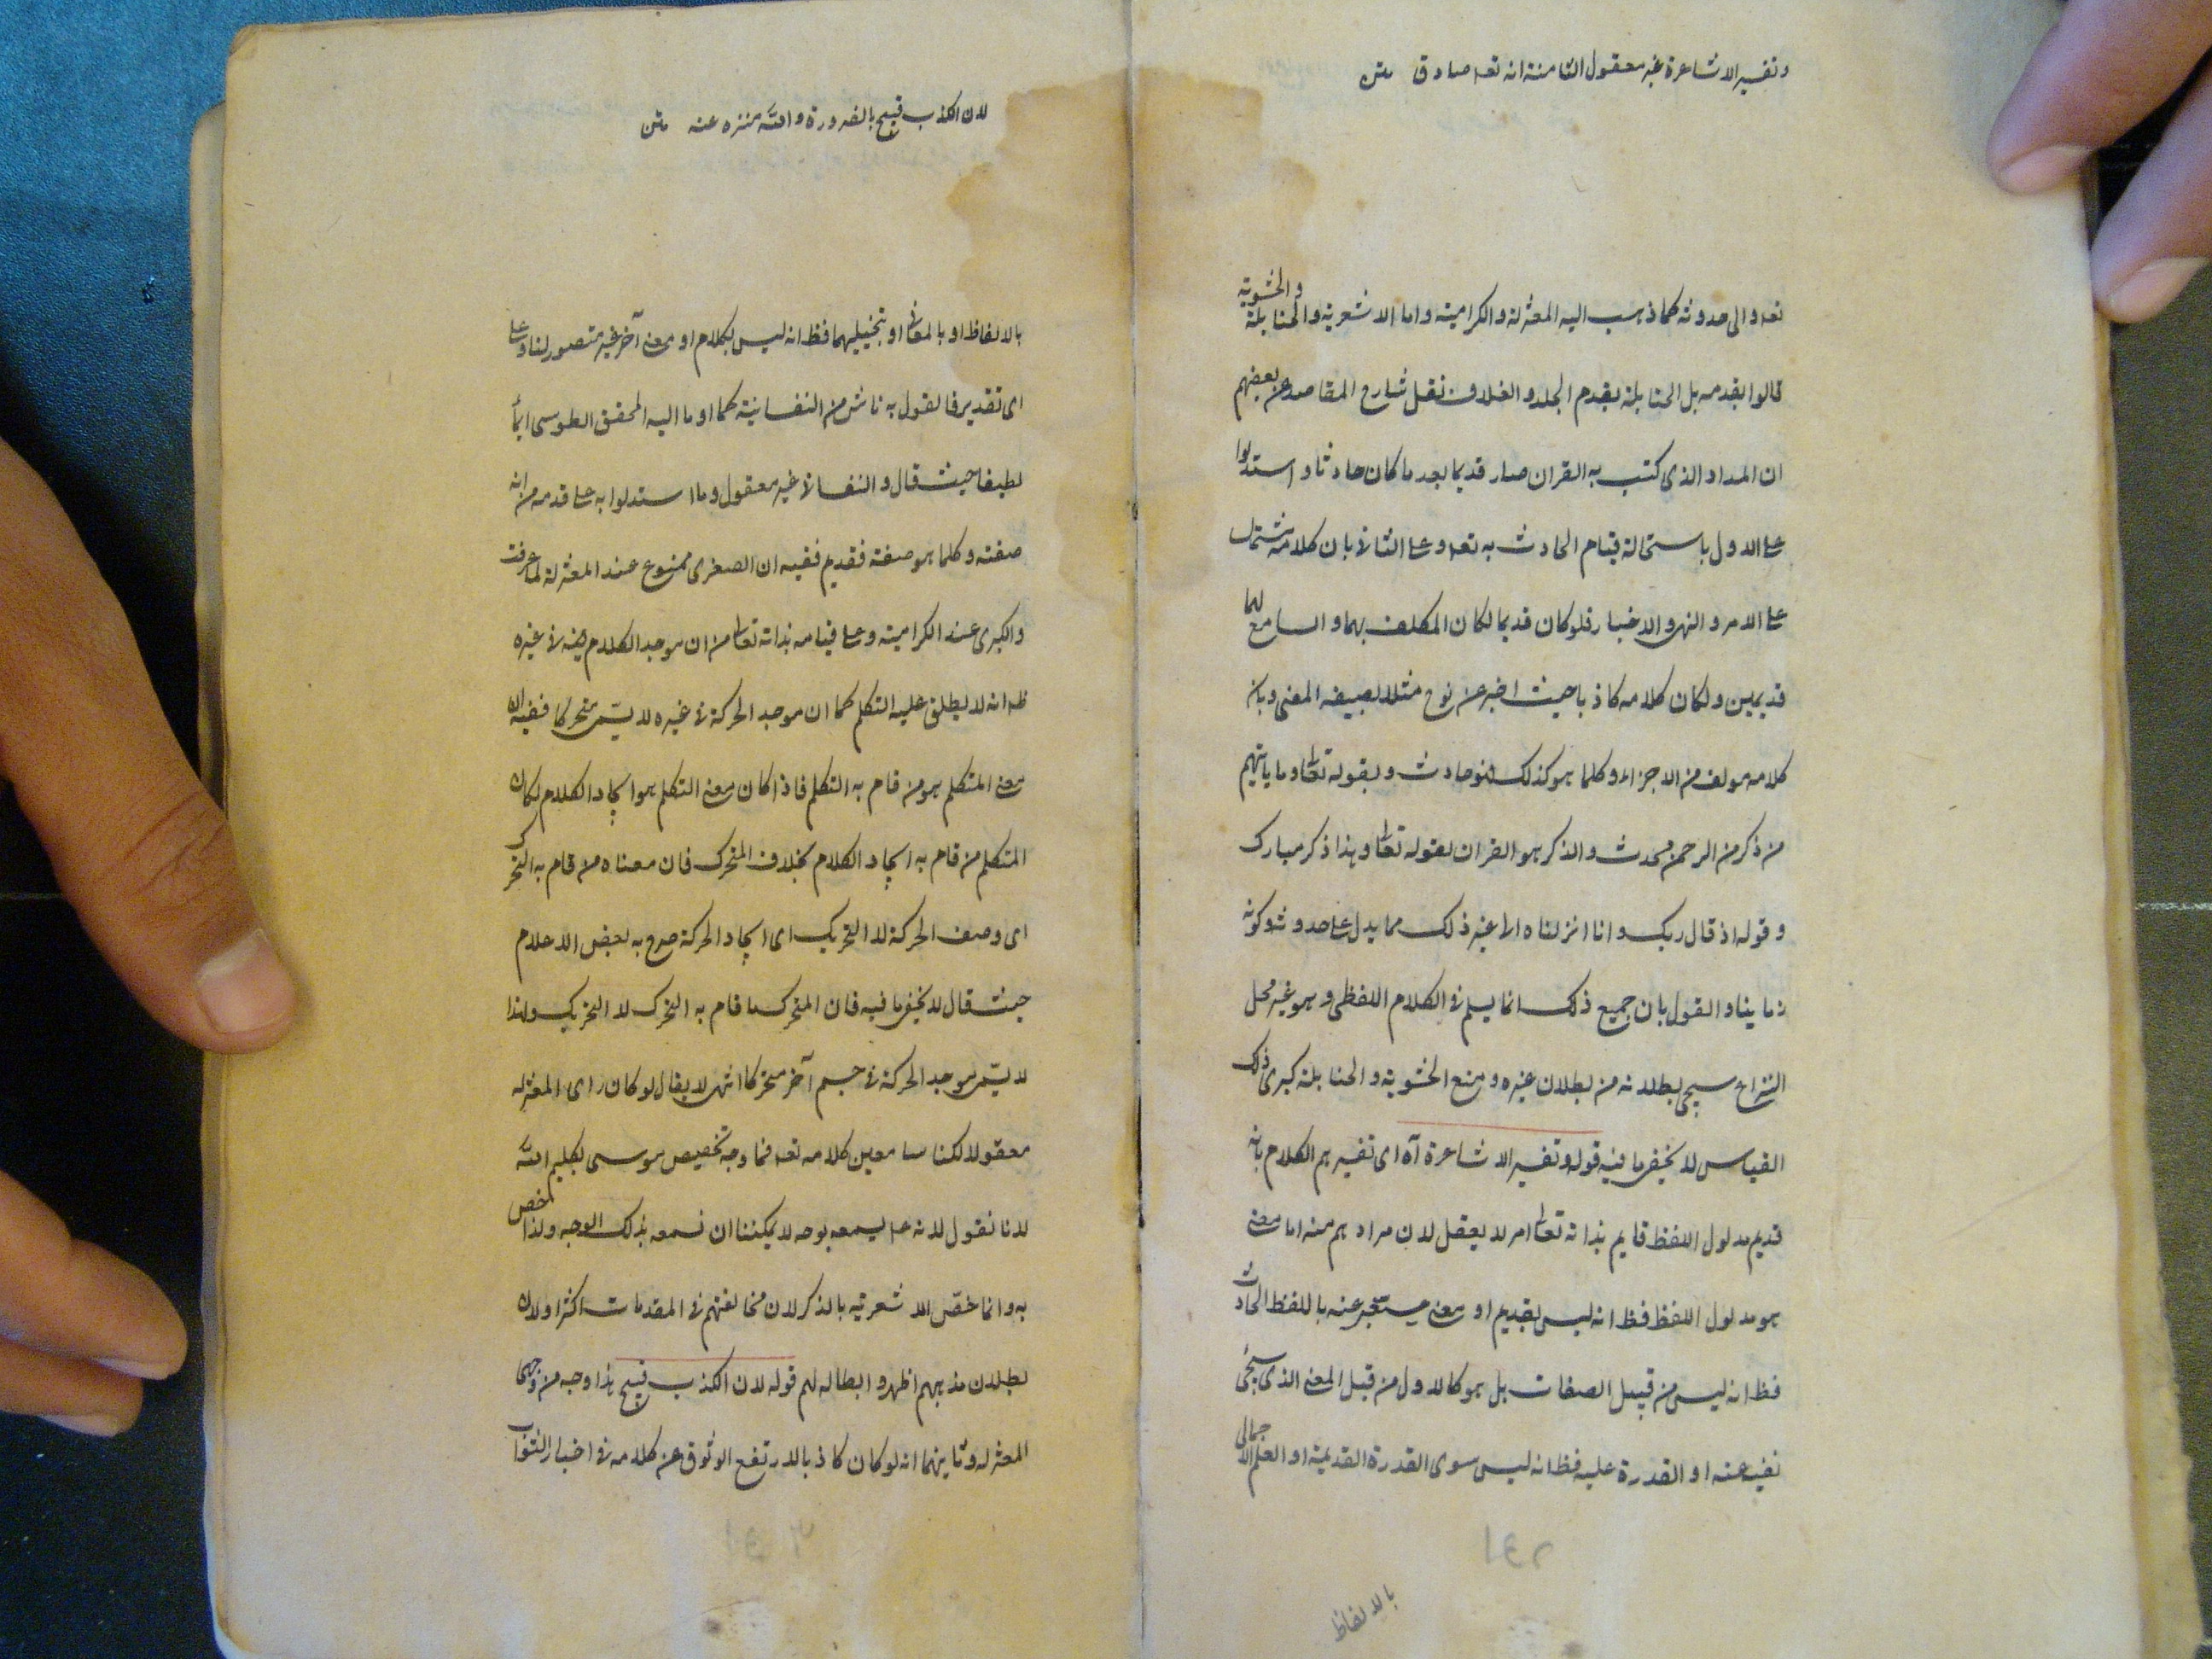 وتفسير الاشاعرة غير معقول الثامنة انه تعہ صادق متن
تعہ والى حدوثه كما ذهب اليه المعتزلة والكرامية واما الاشعرية والحنابلة والحشوية
قالوا بقدمه بل الحنابلة بقدم الجلد والغلاف نقل شارح المقاصد عن بعضهم
ان المداد الذى كتب به القران صار قديما بعد ما كان حادثا واستدلوا
على الاول باستحالة قيام الحادث به تعہ وعلى الثانى بان كلامه مشتمل
على الامر والنهى والاخبار فلو كان قديما لكان المكلف بهما والسامع لهما
قديمين ولكان كلامه كاذبا حيث اخبر عن نوح مثلا بصيغه المضى وبان
كلامه مولف من الاجزاء وكلما هو كذلك فهو حادث وبقوله تعالى وما ياتيهم
من ذكر من الرحمن محدث والذكر هو القران لقوله تعالى وهذا ذكر مبارك
وقوله اذ قال ربك وانا انزلناه الى غير ذلك مما يدل على حدوثه وكونه
زمانيا والقول بان جميع ذلك انما يسلم فى الكلام اللفظى وهو غير محل
النزاع سيجى بطلانه من بطلان غيره ومنع الحشوية والحنابلة كبرى ذلك
القياس لا يخفى ما فيه قوله وتفسير الاشاعرة اه اى تفسيرهم الكلام بانه
قديم مدلول اللفظ قايم بذاته تعالى امر لا يعقل لان مرادهم منه اما معنى
هو مدلول اللفظ فظ انه ليس بقديم او معنى يعبر عنه باللفظ الحادث
فظ انه ليس من قبيل الصفات بل هو كالاول من قبل المعنى الذى سيجى
نفيه عنه او القدرة عليه فظ انه ليس سوى القدرة القديمة او العلم الاجمالى
بالالفاظ
لان الكذب قبيح بالضرورة والله منزه عنه متن
بالالفاظ او بالمعانى او بتخييلهما فظ انه ليس بكلام او معنى آخر غير متصور لنا وعلى
اى تقدير فالقول به ناش من النفسانية كما اوما اليه المحقق الطوسى ايماء
لطيفا حيث قال والنفسانى غير معقول وما استدلوا به على قدمه من انه
صفته وكلما هو صفته فقديم ففيه ان الصغرى ممنوع عند المعتزلة لما عرفت
والكبرى عند الكرامية وعلى قيامه بذاته تعالى من ان موجد الكلام فى غيره
ظہ انه لا يطلق عليه التكلم كما ان موجد الحركة فى غيره لا يسمى متحركا ففيه ان
معنى المتكلم هو من قام به التكلم فاذا كان معنى التكلم هو ايجاد الكلام لكان
المتكلم من قام به ايجاد الكلام بخلاف المتحرك فان معناه من قام به التحرك
اى وصف الحركة لا التحريك اى ايجاد الحركة صرح به بعض الاعلام
حيث قال لا يخفى ما فيه فان المتحرك ما قام به التحرك لا التحريك ولهذا
لا يسمى موجد الحركة فى جسم آخر متحركا انتهى لا يقال لو كان راى المعتزله
معقولا لكنا سامعين كلامه تعہ فما وجه تخصيص موسى بكليم الله
لانا نقول لانه ع يسمعه بوجه لا يمكننا ان نسمعه بذلك الوجه ولذا اختص
به وانما خص الاشعرية بالذكر لان مخالفتهم فى المقدمات اكثر اولان
بطلان مذهبهم اظهر وابطاله اهم قوله لان الكذب قبيح هذا وجه من وجهى
المعتزله وثانيهما انه لو كان كاذبا لارتفع الوثوق عن كلامه فى اخبار الثواب